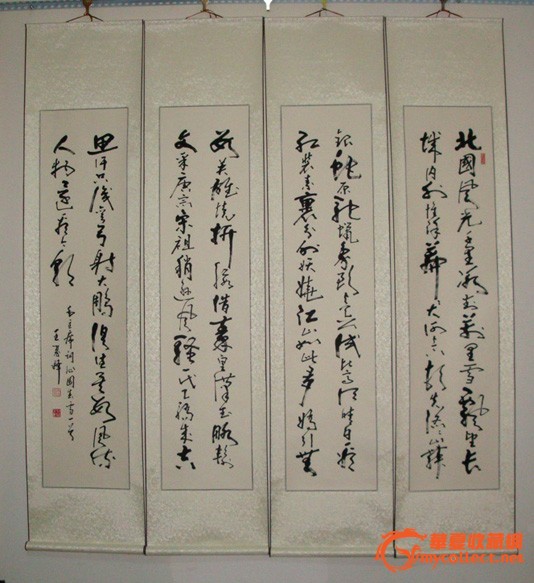 北國風光千里冰封萬里雪飄望長
城内外惟餘莽莽大河上下頓失滔滔山舞
銀蛇原馳蠟象欲與天公試比高須晴日看
紅裝素裹分外妖嬈江山如此多嬌引無
數英雄競折腰惜秦皇漢武略輸
文采唐宗宋祖稍遜風騷一代天驕成吉
思汗只識彎弓射大鵰俱往矣數風流
人物還看今朝
毛主席詞沁園春雪一首
華夏收藏網